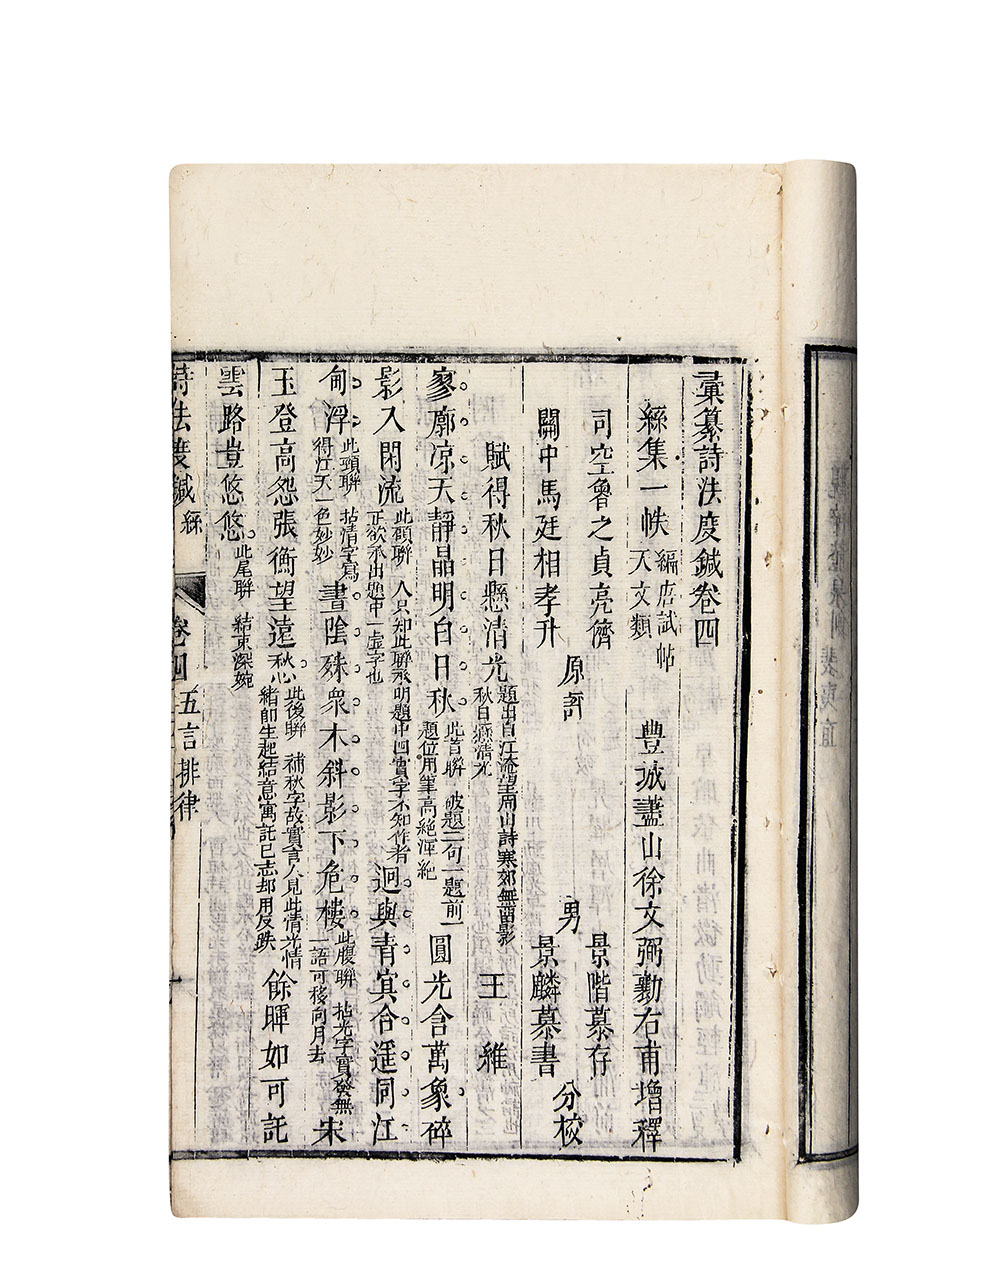 彙纂詩法度鍼卷四
絲集一帙 編唐試帖 天文類 豐城藎山徐文弼勷右甫增釋
司空魯之貞亮儕 景階慕存
原評 男 分校
關中馬廷相孝升 景麟慕書
賦得秋日懸清光 題出自江淹望荊山詩寒郊無留影 秋日懸清光 王維
寥廓凉天靜晶明白日秋 此首聯 破題二句一題前一 題位用筆高絕渾絕 圓光含萬象碎
影入閑流 此頷聯 人只知此聯承明題中四實字不知作者 正欲承出題中一虛字也 迥與青冥合遥同江
甸浮 此頸聯 拈清字寫 得江天一色妙妙 晝陰殊衆木斜影下危樓 此腹聯 拈光字實發無 一語可移向月去 宋
玉登高怨張衡望遠愁 此後聯 補秋字故實言人見此情光情 緒卽生起結意寓託已志却用反跌 餘暉如可託
雲路豈悠悠 此尾聯 結束深婉
詩法度鍼 絲 卷四 五言排律